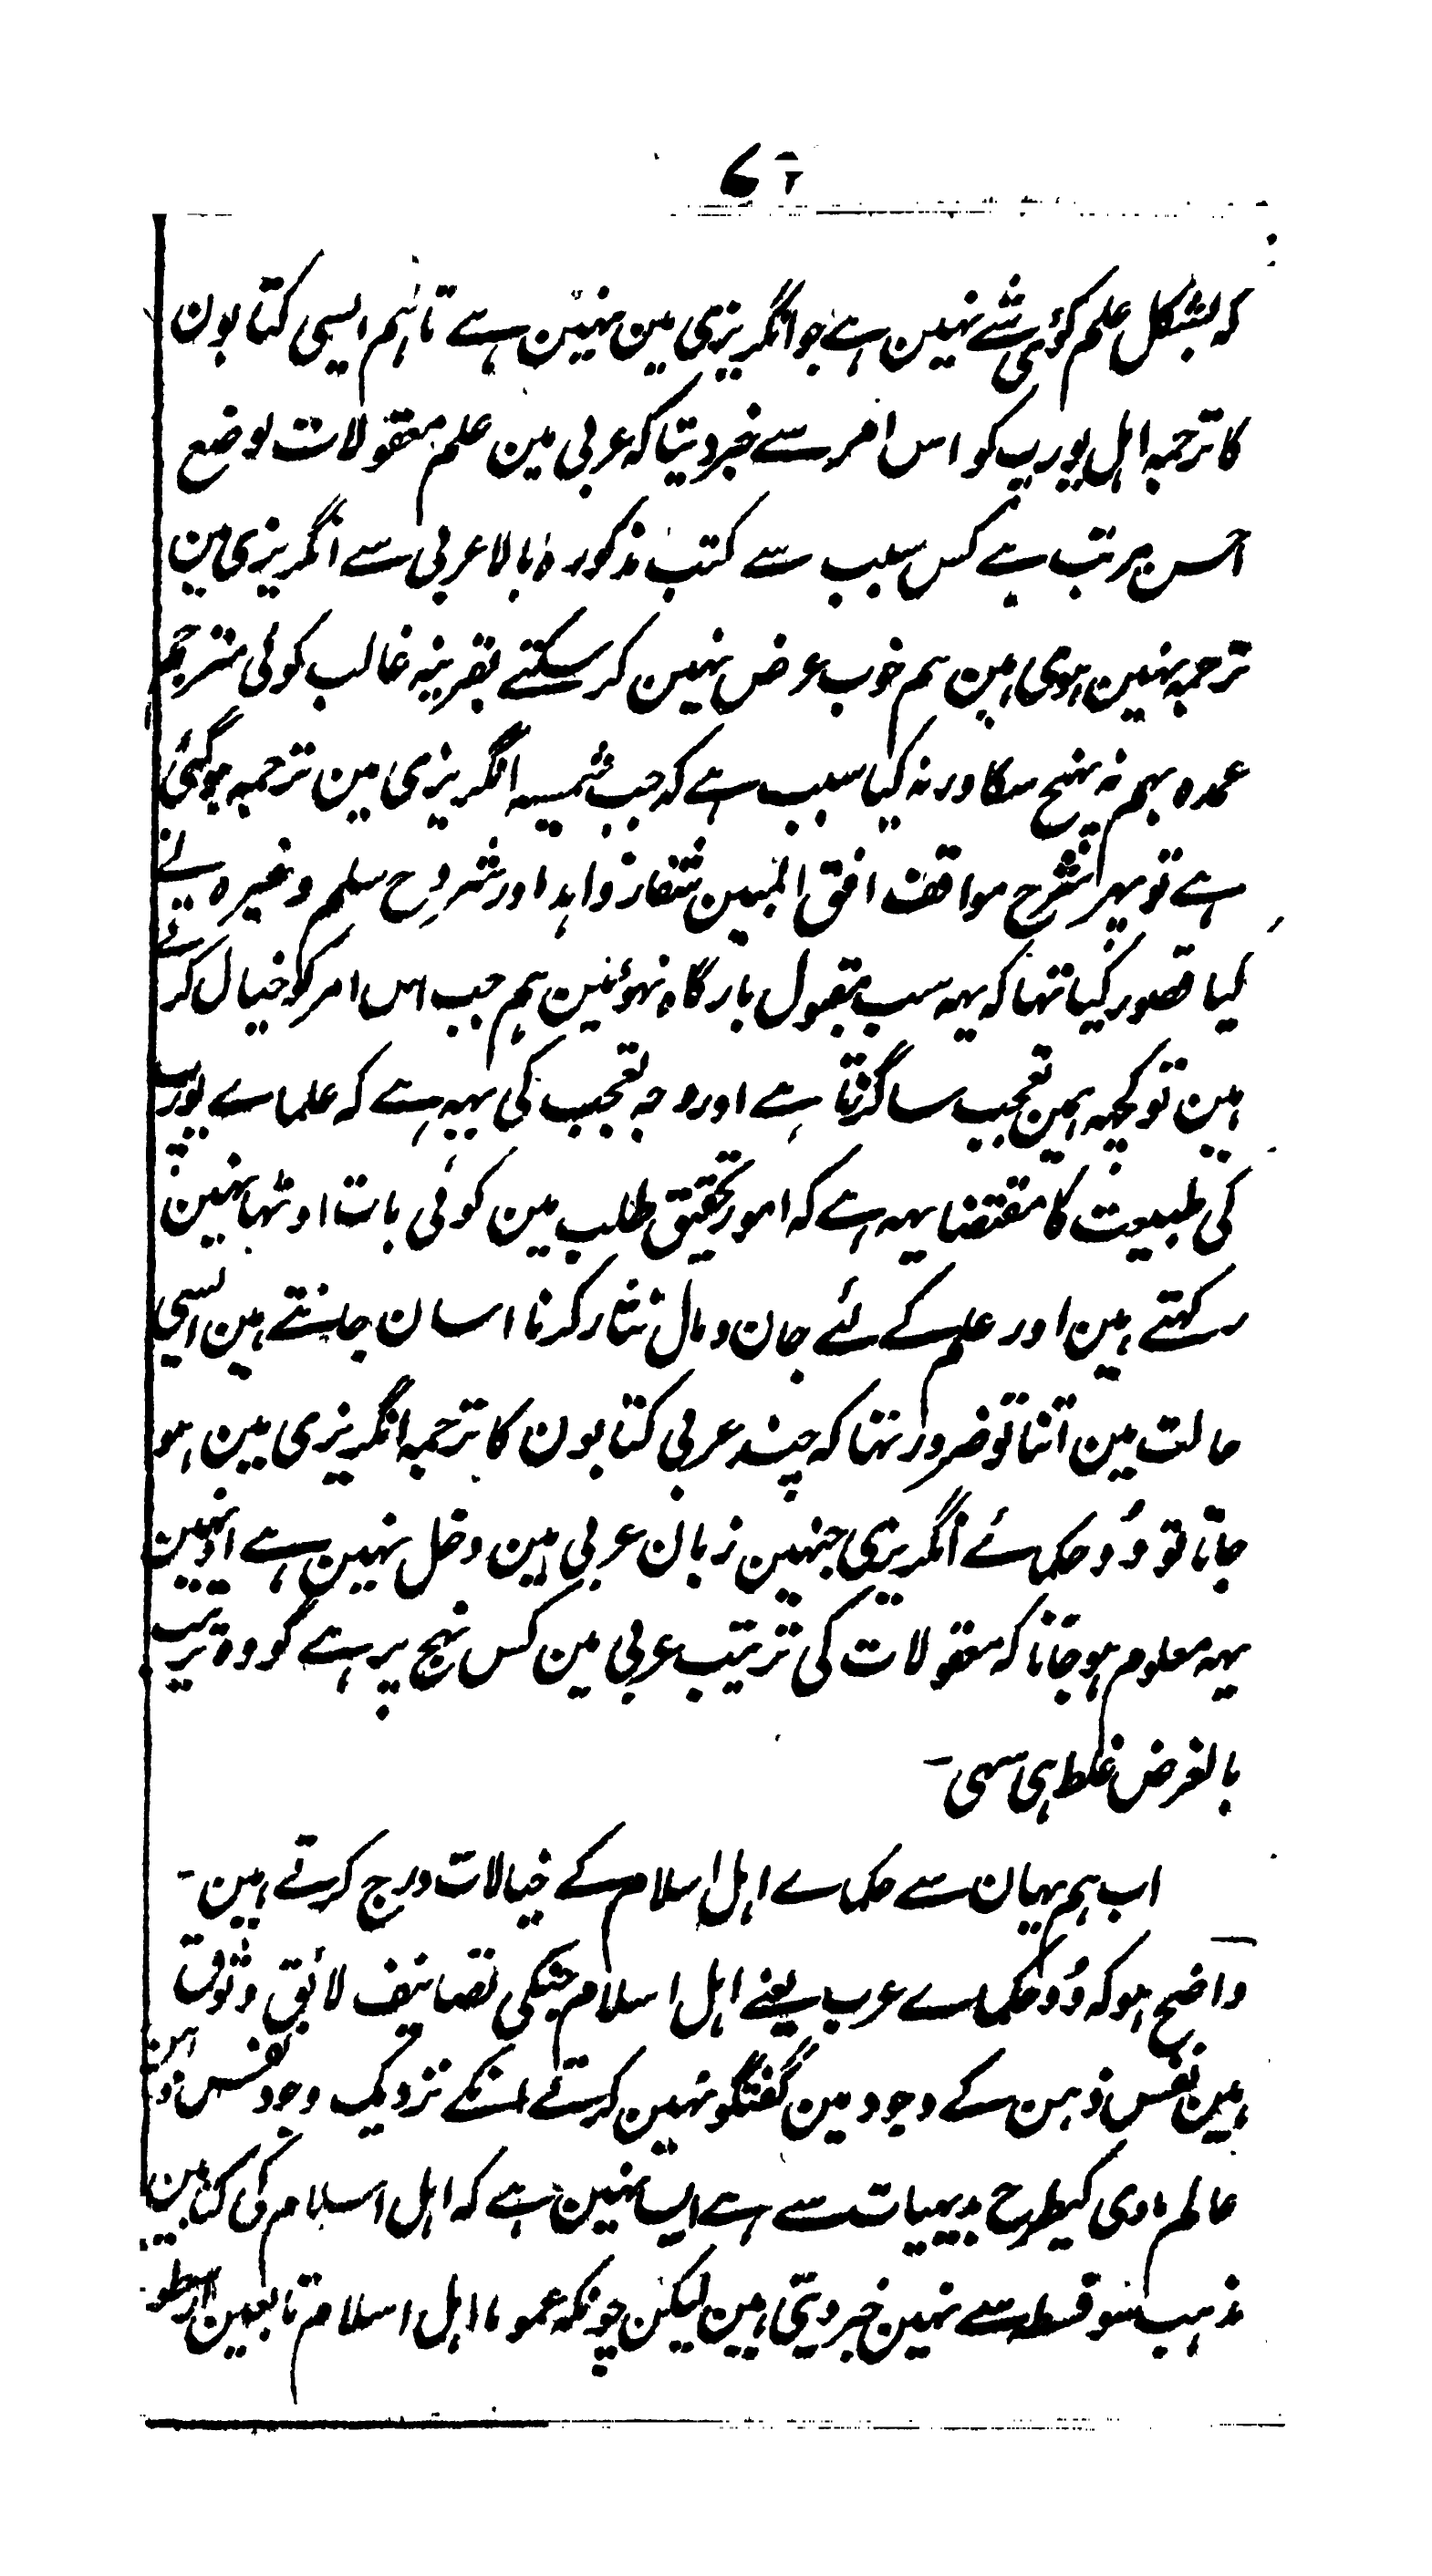 کہ بشکل علم کوئی شے نہین ہے جو انگریزی مین نہین ہے تاہم ایسی کتابون
کا ترجمہ اہل یورپ کو اس امر سے خبر دیتا کہ عربی مین علم معقولات بوضع
احسن مرتب ہے کس سبب سے کتب مذکورہ بالا عربی سے انگریزی مین
ترجمہ نہین ہوی ہین ہم خوب عرض نہین کر سکتے بقرینہ غالب کوئی مترجم
عمدہ بہم نہ پہنچ سکا ورنہ کیا سبب ہے کہ جب شمسیہ انگریزی مین ترجمہ ہو گئی
ہے تو پہر شرح مواقف افق المبین شفا زواہد اور شروح سلم وغیرہ نے
کیا قصور کیا تہا کہ یہہ سب مقبول بارگاہ نہوئین ہم جب اس امر کو خیال کرتے
ہین تو کچہہ ہمین تعجب سا گزرتا ہے اور وجہ تعجب کی یہہ ہے کہ علماے یورپ
کی طبیعت کا مقتضا یہہ ہے کہ امور تحقیق طلب مین کوئی بات اوٹہا نہین
رکہتے ہین اور علم کے لئے جان و مال نثار کرنا اسان جانتے ہین ایسی
حالت مین اتنا تو ضرور تہا کہ چند عربی کتابون کا ترجمہ انگریزی مین ہو
جاتا تو وُو حکمائے انگریزی جنہین زبان عربی مین دخل نہین ہے اونہین
یہہ معلوم ہو جاتا کہ معقولات کی ترتیب عربی مین کس نہج پر ہے گو وہ ترتیب
بالفرض غلط ہی سہی -
اب ہم یہان سے حکماے اہل اسلام کے خیالات درج کرتے ہین -
واضح ہو کہ وُو حکماے عرب یعنے اہل اسلام جنکی تصانیف لائق وثوق
ہین نفس ذہن کے وجود مین گفتگو نہین کرتے انکے نزدیک وجود نفس ذہن
عالم مادی کیطرح بدیہیات سے ہے ایسا نہین ہے کہ اہل اسلام کی کتابین
مذہب سوفسطہ سے نہین خبر دیتی ہین لیکن چونکہ عموما اہل اسلام تابعین ارسطو